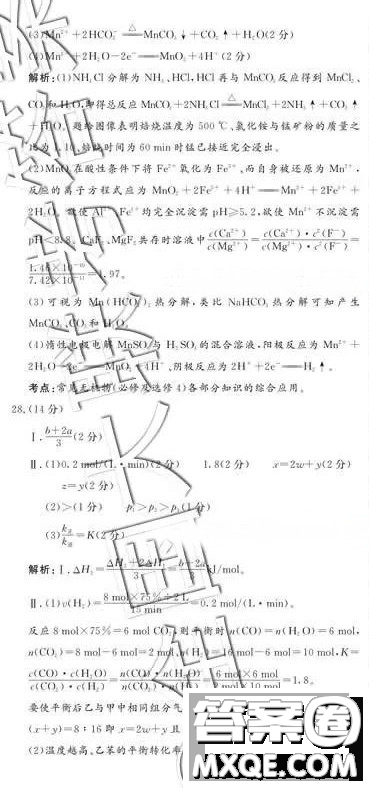 (3)Mn²⁺+2HCO₃⁻ ≜ MnCO₃↓+CO₂↑+H₂O(2分)
(4)Mn²⁺+2H₂O-2e⁻══MnO₂+4H⁺(2分)
解析:(1)NH₄Cl分解为NH₃、HCl,HCl再与MnCO₃反应得到MnCl₂、
CO₂和H₂O,即得总反应MnCO₃+2NH₄Cl ≜ MnCl₂+2NH₃↑+CO₂↑
+H₂O。题给图像表明焙烧温度为500℃、氯化铵与锰矿粉的质量之
比为1.10、焙烧时间为60 min时锰已接近完全浸出。
(2)MnO₂在酸性条件下将Fe²⁺氧化为Fe³⁺,而自身被还原为Mn²⁺,
反应的离子方程式应为MnO₂+2Fe²⁺+4H⁺══Mn²⁺+2Fe³⁺+
2H₂O。欲使Al³⁺、Fe³⁺均完全沉淀需pH≥5.2,欲使Mn²⁺不沉淀需
pH<8.8。CaF₂、MgF₂共存时溶液中c(Ca²⁺)/c(Mg²⁺)=c(Ca²⁺)·c²(F⁻)/c(Mg²⁺)·c²(F⁻)=
1.46×10⁻¹⁰/7.42×10⁻¹¹=1.97。
(3)可视为Mn(HCO₃)₂热分解,类比NaHCO₃热分解可知产生
MnCO₃、CO₂和H₂O。
(4)惰性电极电解MnSO₄与H₂SO₄的混合溶液,阳极反应为Mn²⁺+
2H₂O-2e⁻══MnO₂+4H⁺,阴极反应为2H⁺+2e⁻══H₂↑。
考点:常见无机物(必修及选修4)各部分知识的综合应用。
28.(14分)
Ⅰ.(b+2a)/3(2分)
Ⅱ.(1)0.2 mol/(L·min)(2分) 1.8(2分) x=2w+y(2分)
z=y(2分)
(2)>(1分) p₁>p₂>p₃(1分)
(3)k正/k逆=K(2分)
解析:Ⅰ.ΔH₃=(ΔH₁+2ΔH₂)/3=(b+2a)/3 kJ/mol。
Ⅱ.(1)v(H₂)=8 mol×75%÷2 L/15 min=0.2 mol/(L·min)。
反应8 mol×75%=6 mol CO₂,则平衡时n(CO)=n(H₂O)=6 mol,
n(CO₂)=8 mol-6 mol=2 mol、n(H₂)=16 mol-6 mol=10 mol,K=
c(CO)·c(H₂O)/c(CO₂)·c(H₂)=n(CO)·n(H₂O)/n(CO₂)·n(H₂)=6 mol×6 mol/2 mol×10 mol=1.8。
要使平衡后乙与甲中相同组分气
(x+y)=8∶16即x=2w+y且
(2)温度越高、乙苯的平衡转化率
答案圈
MXQE.COM